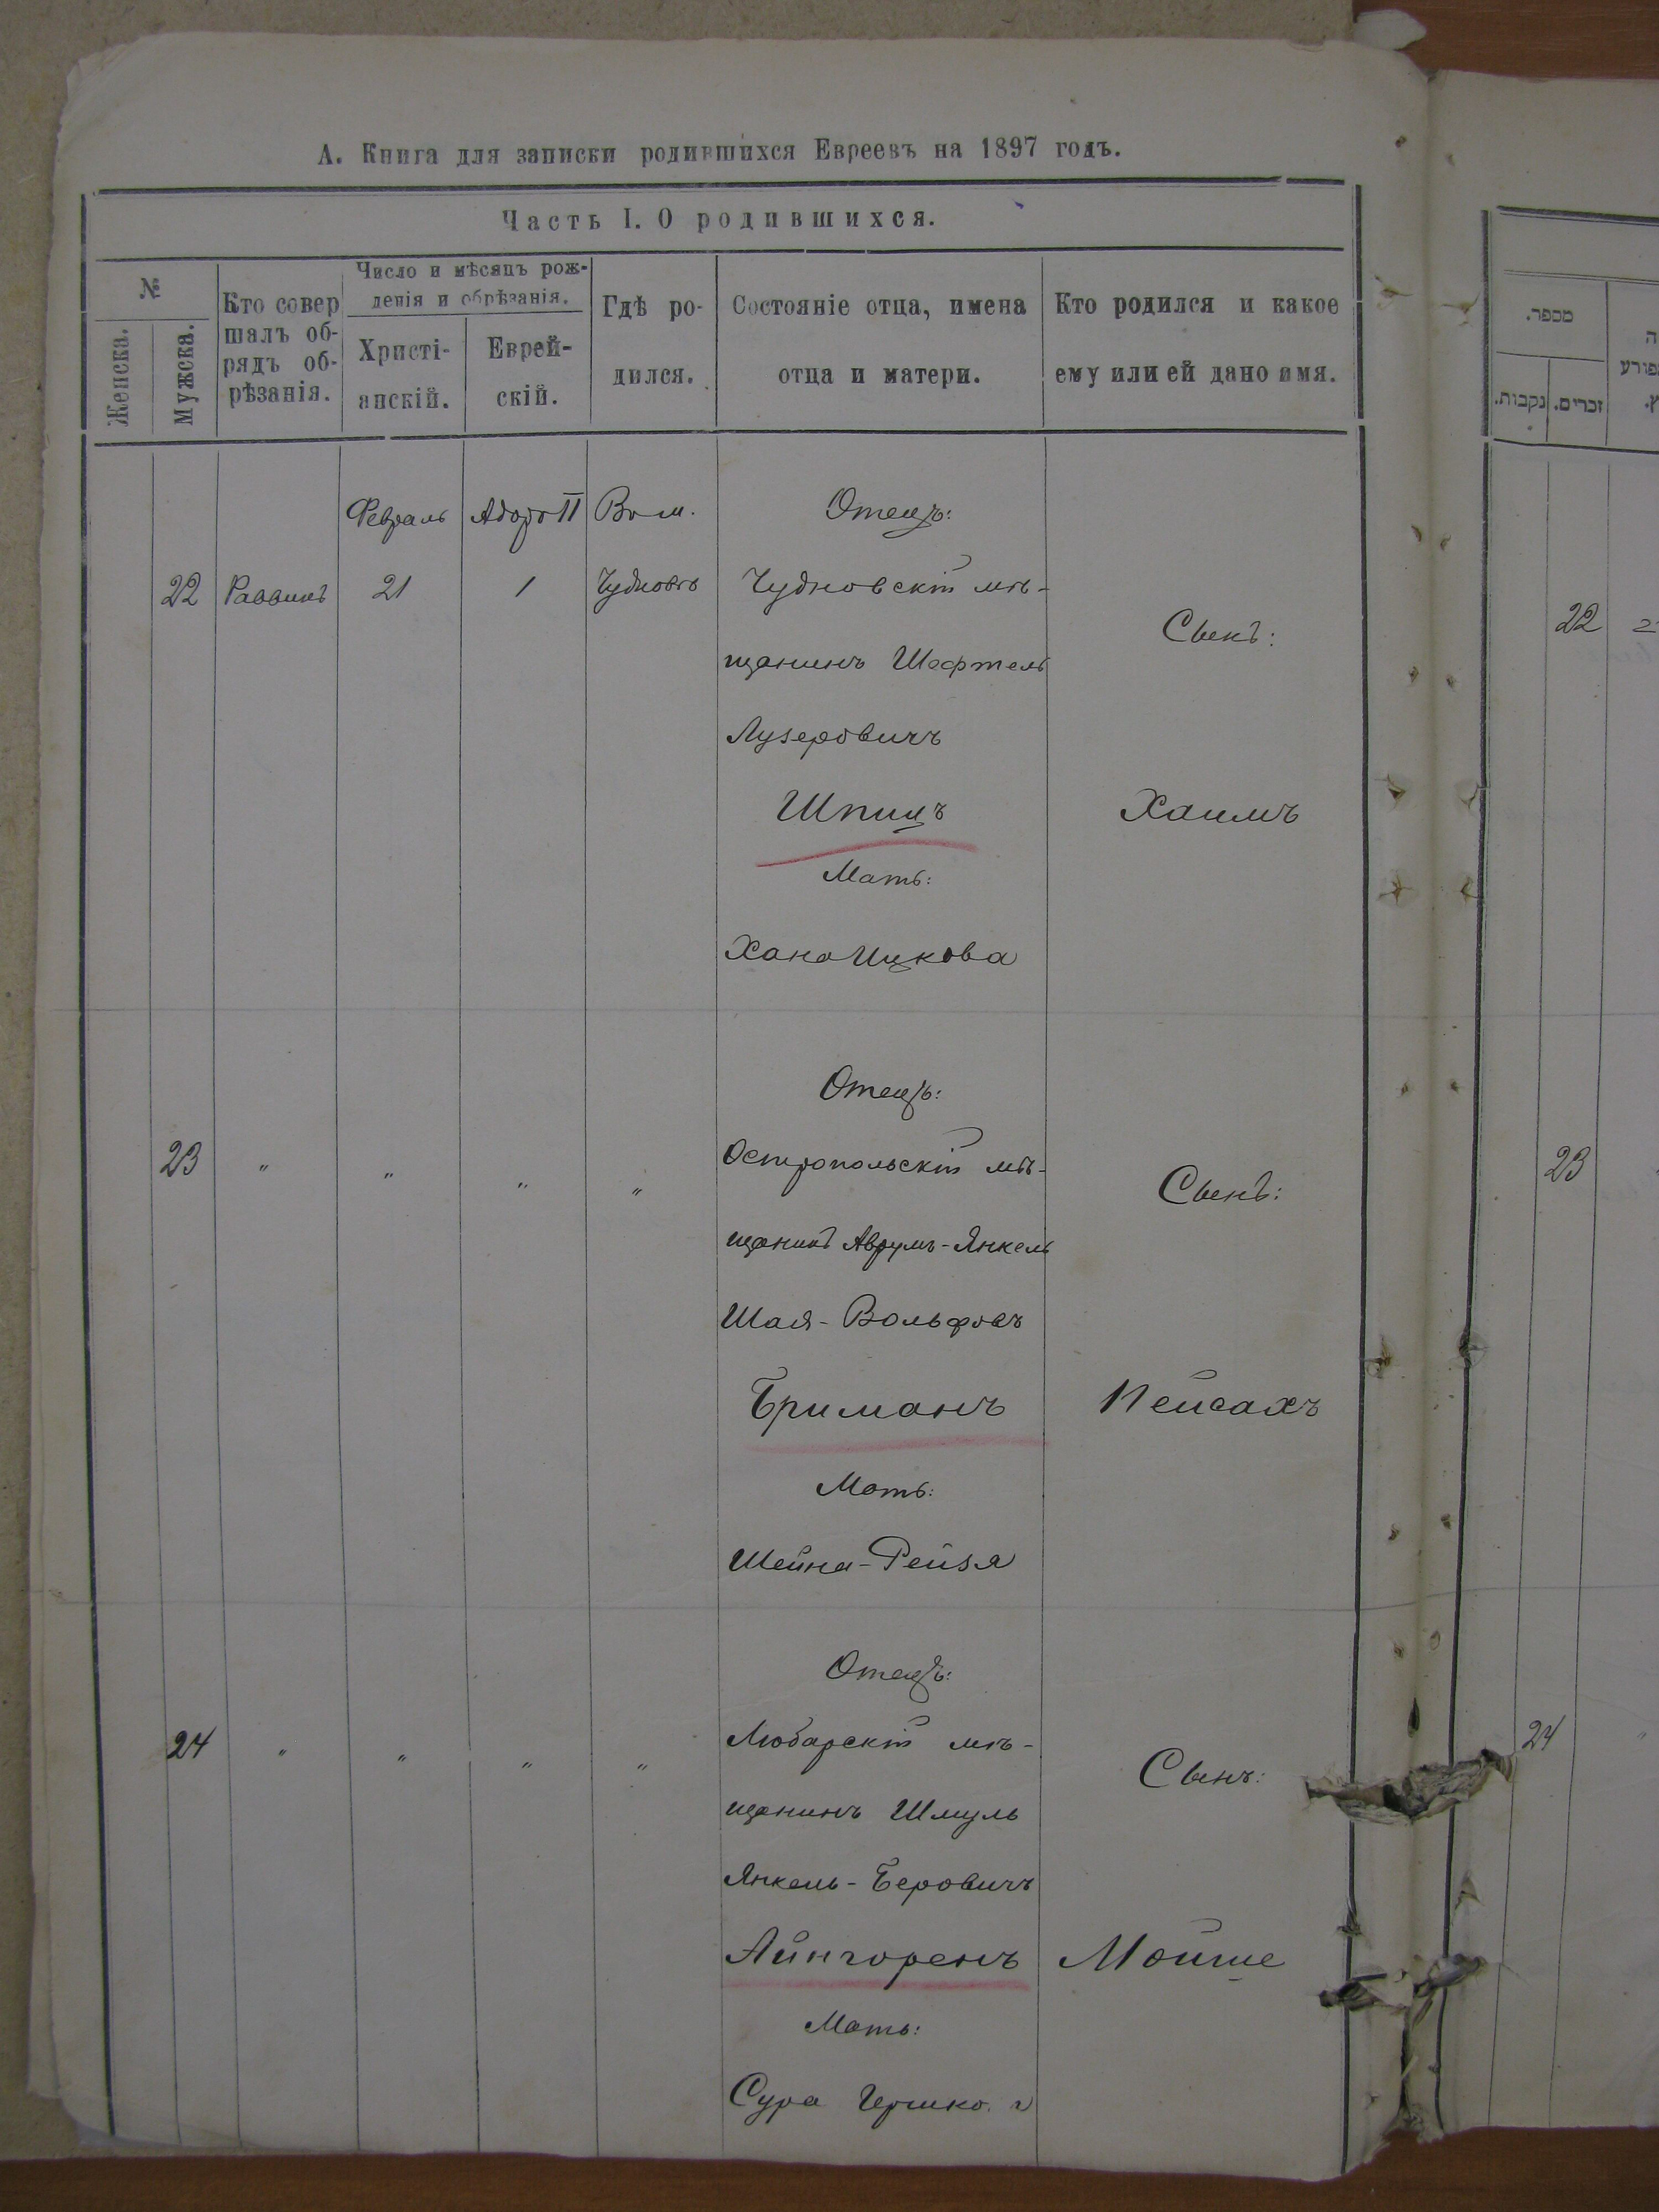 А. Книга для записки родившихся Евреевъ на 1897 годъ.
Часть I. О родившихся.
№
Женска.
Мужска.
Кто совер
шалъ об-
рядъ об-
рѣзанія.
Число и мѣсяцъ рож-
денія и обрѣзанія.
Христі-
анскій.
Еврей-
скій.
Гдѣ ро-
дился.
Состояніе отца, имена
отца и матери.
Кто родился и какое
ему или ей дано имя.
Февраль
Адоро II
Въ м.
Отецъ:
22 Раввинъ 21 1 Чудновѣ Чудновскій мѣ-
щанинъ Шефтель
Лузеровичъ
Шпицъ
Мать:
Хана Ицкова
Сынъ:
Хаимъ
Отецъ:
23 " " " " Остропольскій мѣ-
щанинъ Аврумъ-Янкель
Шая-Вольфовъ
Бриманъ
Мать:
Шейна-Рейзя
Сынъ:
Пейсахъ
Отецъ:
24 " " " " Любарскій мѣ-
щанинъ Шмуль
Янкель-Беровичъ
Айнгоренъ
Мать:
Сура
Сынъ:
Мойше
מספר.
נקבות.
זכרים.
22
23
24